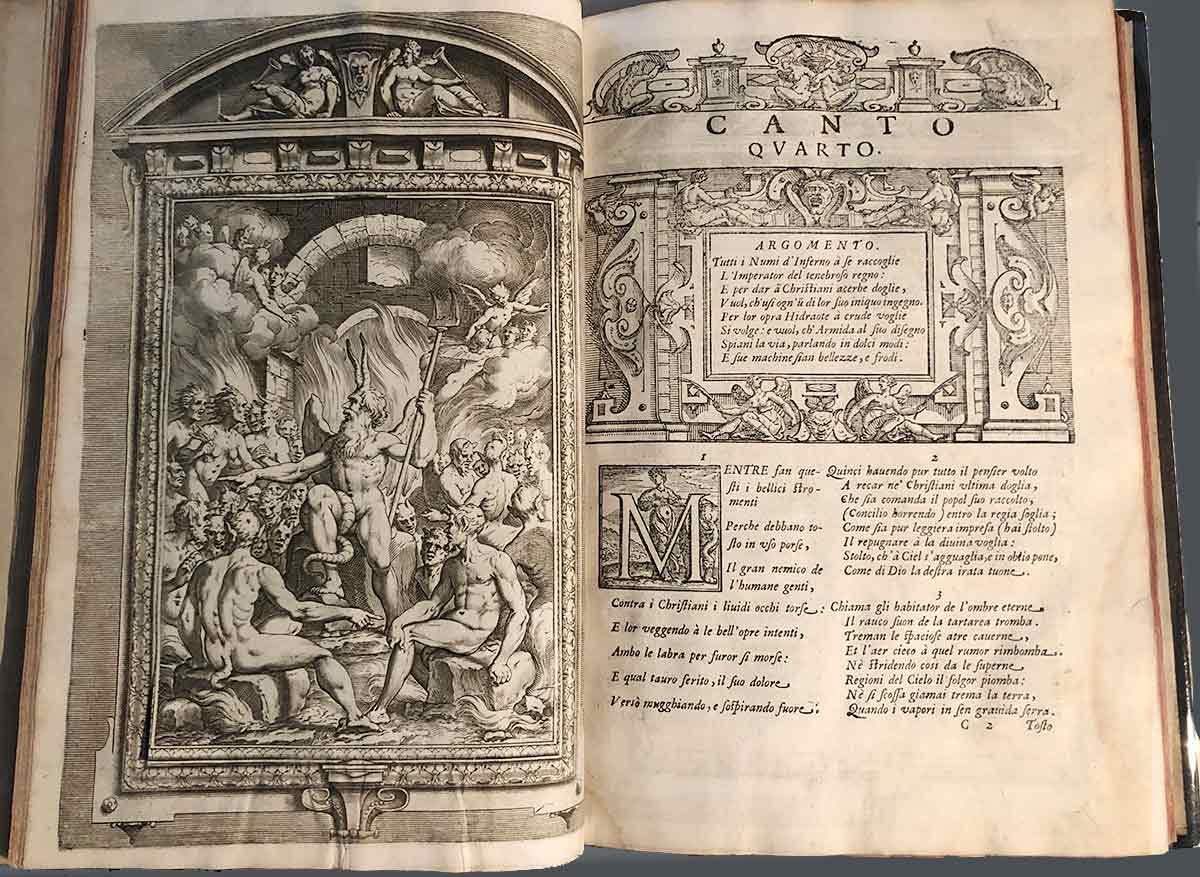 CANTO
QVARTO.
ARGOMENTO.
Tutti i Numi d'Inferno à se raccoglie
L'Imperator del tenebroso regno:
E per dar à Christiani acerbe doglie,
Vuol, ch'usi ogn'ũ di lor suo iniquo ingegno.
Per lor opra Hidraote à crude voglie
Si volge: e vuol, ch'Armida al suo disegno
Spiani la via, parlando in dolci modi:
E sue machine sian bellezze, e frodi.
1
MENTRE fan que-
sti i bellici stro-
menti
Perche debbano to-
sto in vso porse,
Il gran nemico de
l'humane genti,
Contra i Christiani i liuidi occhi torse:
E lor veggendo à le bell'opre intenti,
Ambo le labra per furor si morse:
E qual tauro ferito, il suo dolore
Versò mugghiando, e sospirando fuore.
2
Quinci hauendo pur tutto il pensier volto
A recar ne' Christiani vltima doglia,
Che sia comanda il popol suo raccolto,
(Concilio horrendo) entro la regia soglia;
Come sia pur leggiera impresa (hai stolto)
Il repugnare à la diuina voglia:
Stolto, ch'à Ciel s'agguaglia, e in oblio pone,
Come di Dio la destra irata tuone.
3
Chiama gli habitator de l'ombre eterne
Il rauco suon de la tartarea tromba.
Treman le spaciose atre cauerne,
Et l'aer cieco à quel rumor rimbomba.
Nè stridendo cosi da le superne
Regioni del Cielo il folgor piomba:
Nè si scossa giamai trema la terra,
Quando i vapori in sen grauida serra.
C 2 Tosto